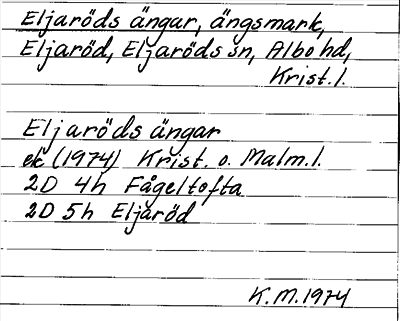 Eljaröds ängar, ängsmark,
Eljaröd, Eljaröds sn, Albo hd,
Krist. l.
Eljaröds ängar
ek (1974) Krist. o. Malm. l.
2D 4h Fågeltofta
2D 5h Eljaröd
K.M. 1974